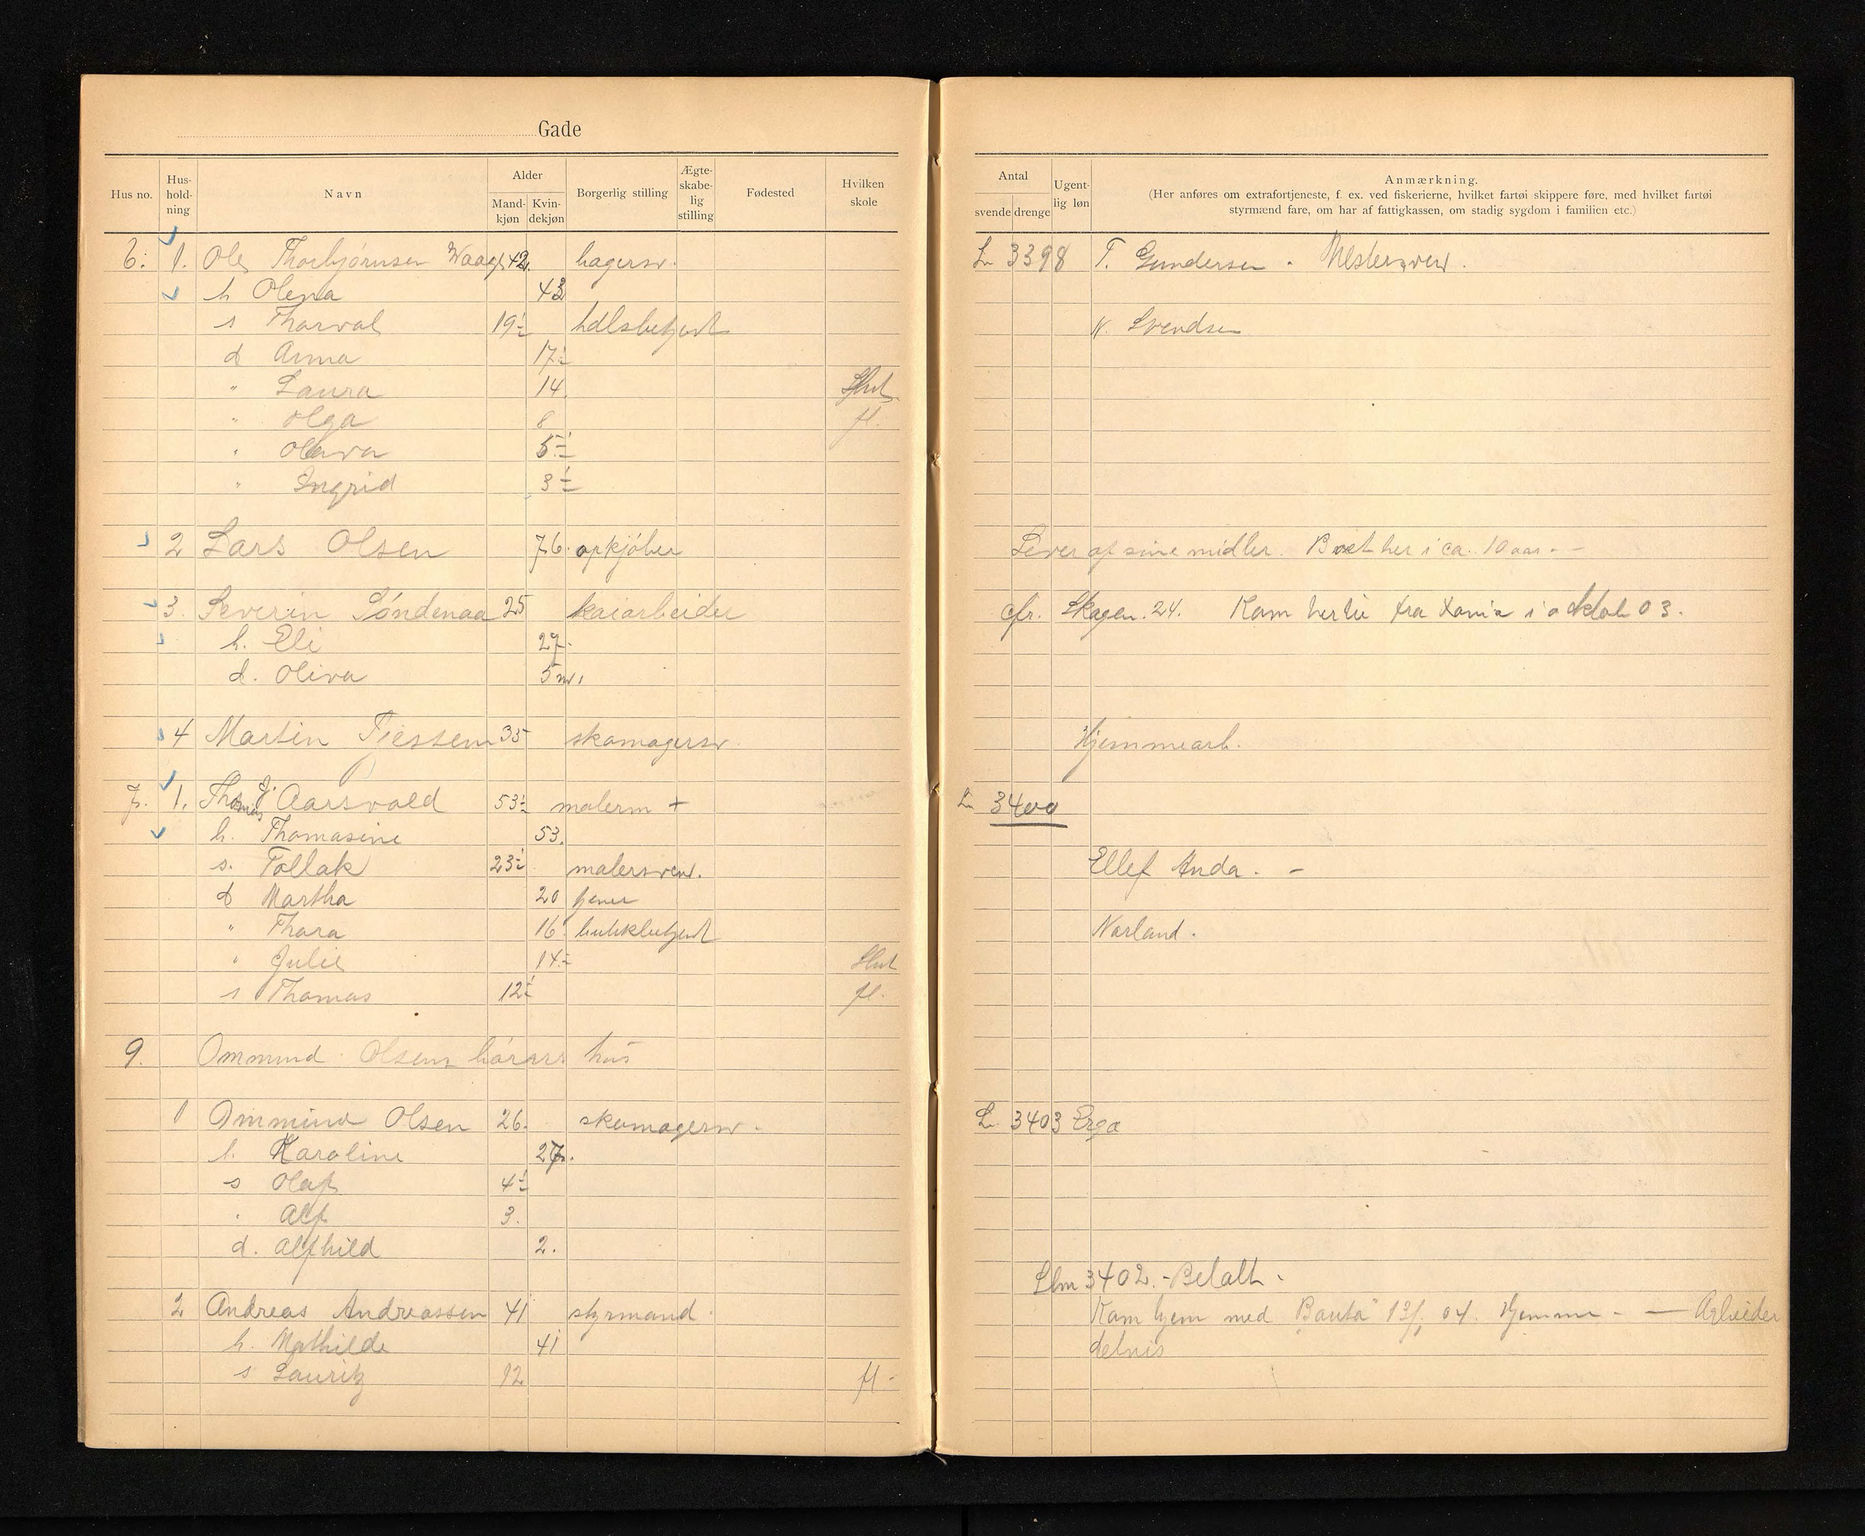 Gade
Hus no. Hus-hold-ning Navn Alder Mand-kjøn Kvin-dekjøn Borgerlig stilling Ægte-skabe-lig stilling Fødested Hvilken skole
Antal svende drenge Ugent-lig løn Anmærkning.
(Her anføres om extrafortjeneste, f. ex. ved fiskerierne, hvilket fartøi skippere føre, med hvilket fartøi
styrmænd fare, om har af fattigkassen, om stadig sygdom i familien etc.)
6. 1. Ole Thorbjørnsen Waage 42. bagersv. L 3398 T. Gundersen. Mestersvend.
h Olena 43
s Thorval 19½ hdlsbetjent N. Svendsen
d Anna 17½
" Laura 14. Slut
" Olga 8 fl.
" Olava 5½
" Ingrid 3½
2 Lars Olsen 76. opkjøber Lever af sine midler. Boet her i ca. 10 aar. -
3. Severin Søndenaa 25 kaiarbeider cfr. Skagen. 24. Kom hertil fra Xania i oktob 03.
h. Eli 27.
d. Oliva 5 m.
4 Martin Tjessem 35 skomagersv. Hjemmearb.
7. 1. Thomas J. Aarsvold 53½ malerm + L 3400
h. Thomasine 53.
s. Tollak 23½ malersvend. Ellef Anda. -
d Martha 20 tjener
" Thora 16 butikbetjent Norland.
" Julie 14½ Slut
s Thomas 12½ fl.
9. Ommund Olsens hus
1 Ommund Olsen 26. skomagersv. L. 3403 Erga
h. Karoline 27.
s Olaf 4½
" Alf 3.
d. Alfhild 2.
3402. - Betalt.
2 Andreas Andreassen 41 styrmand. Kom hjem med "Bauta" 13/1 04. Hjemme - — Arbeider
h. Mathilde 41 delvis
s Lauritz 12 fl -